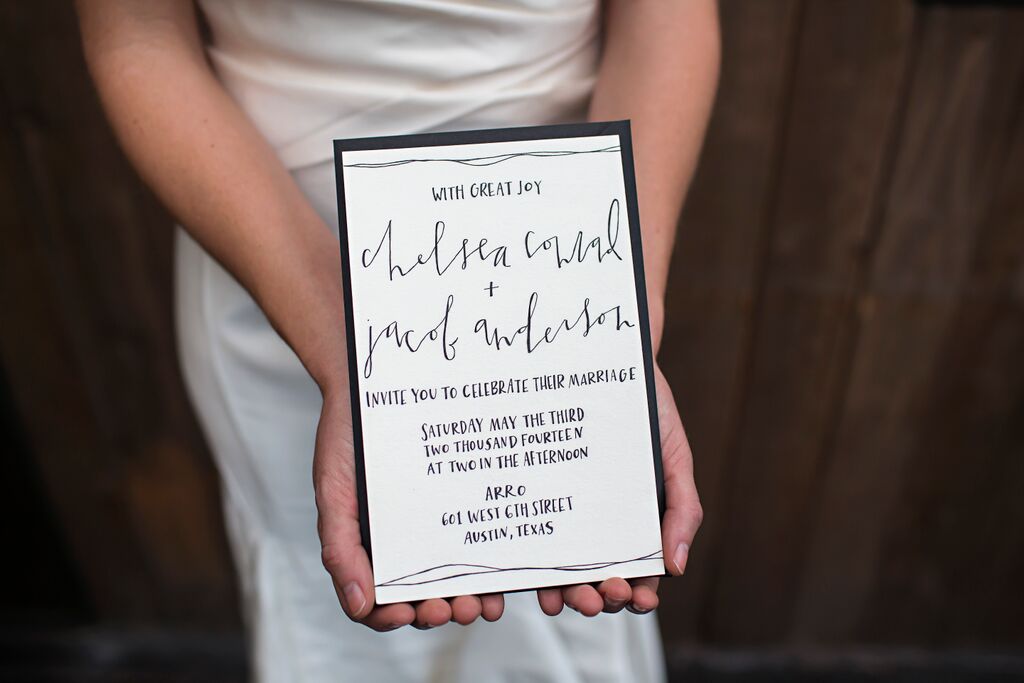 WITH GREAT JOY
chelsea conrad
+
jacob anderson
INVITE YOU TO CELEBRATE THEIR MARRIAGE
SATURDAY MAY THE THIRD
TWO THOUSAND FOURTEEN
AT TWO IN THE AFTERNOON
ARRO
601 WEST 6TH STREET
AUSTIN, TEXAS